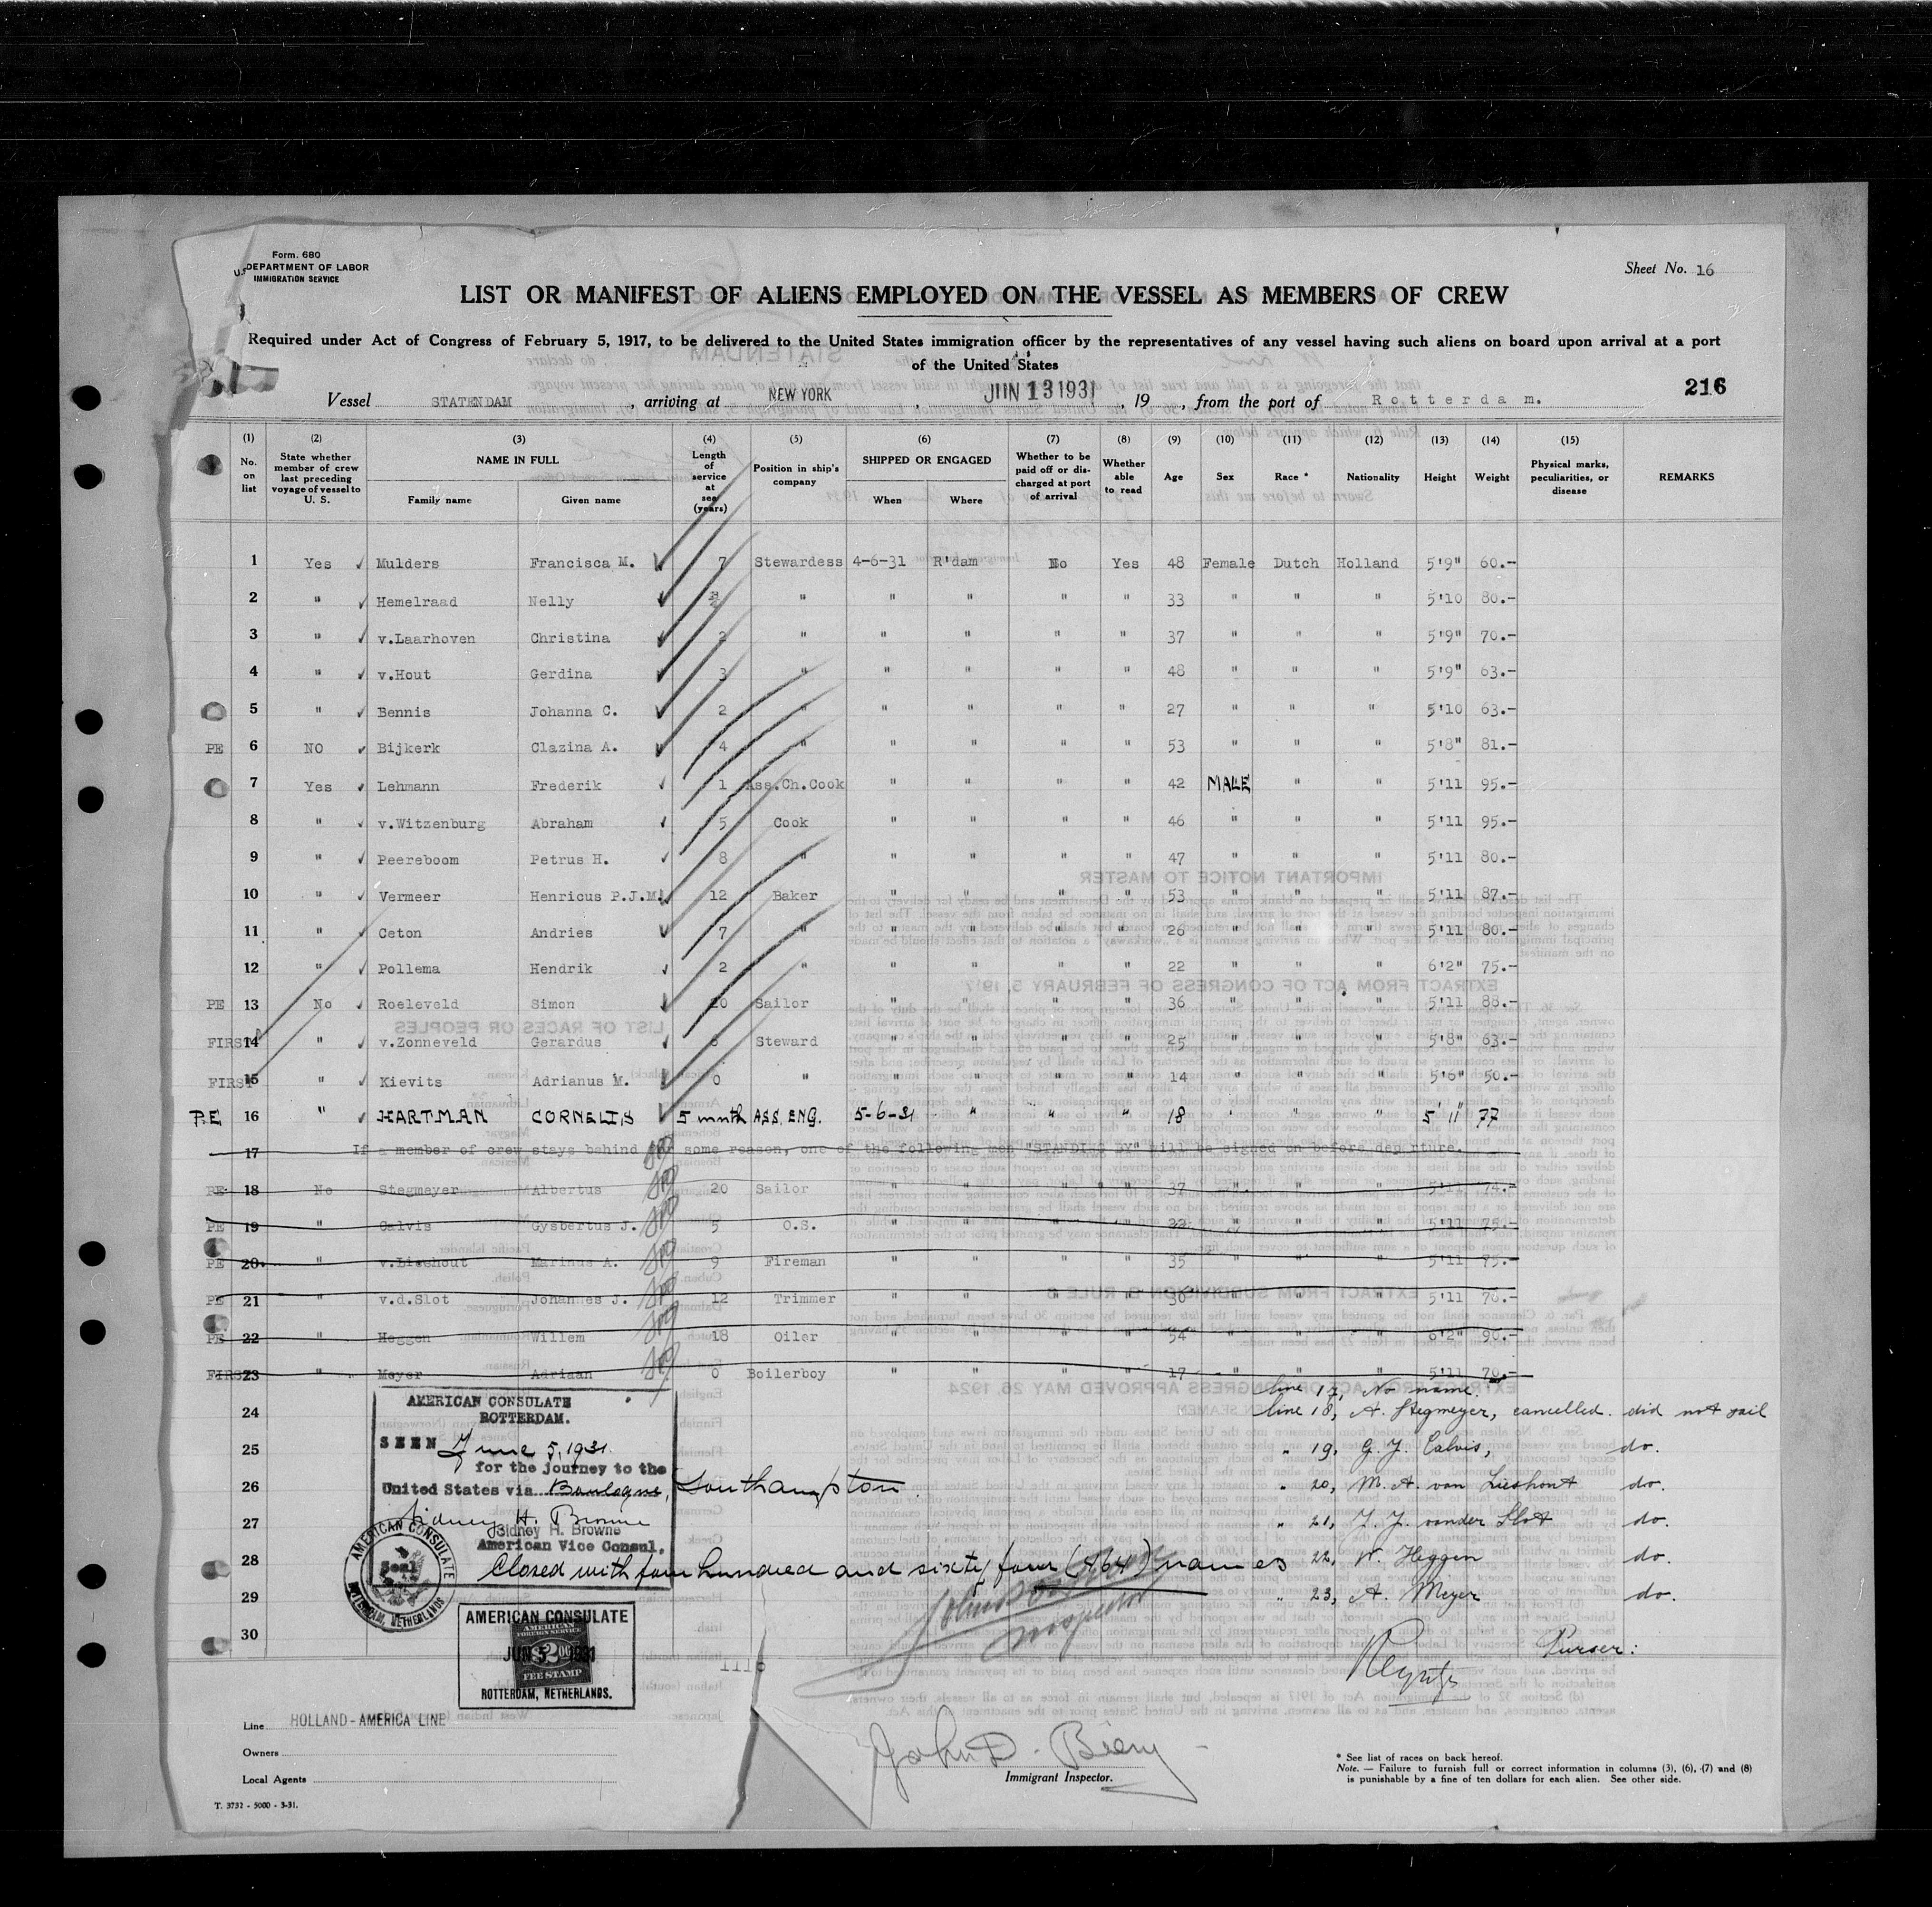 Form. 680
U.S. DEPARTMENT OF LABOR
IMMIGRATION SERVICE
Sheet No. 16
LIST OR MANIFEST OF ALIENS EMPLOYED ON THE VESSEL AS MEMBERS OF CREW
Required under Act of Congress of February 5, 1917, to be delivered to the United States immigration officer by the representatives of any vessel having such aliens on board upon arrival at a port
of the United States
216
Vessel STATENDAM, arriving at NEW YORK, JUN 13 1931, 19, from the port of Rotterdam.
(1) (2) (3) (4) (5) (6) (7) (8) (9) (10) (11) (12) (13) (14) (15)
No. on list State whether member of crew last preceding voyage of vessel to U. S. NAME IN FULL Family name Given name Length of service at sea (years) Position in ship's company SHIPPED OR ENGAGED When Where Whether to be paid off or discharged at port of arrival Whether able to read Age Sex Race * Nationality Height Weight Physical marks, peculiarities, or disease REMARKS
1 Yes Mulders Francisca M. 7 Stewardess 4-6-31 R'dam No Yes 48 Female Dutch Holland 5'9" 60.-
2 " Hemelraad Nelly " " " " " 33 " " " 5'10 80.-
3 " v.Laarhoven Christina 2 " " " " " 37 " " " 5'9" 70.-
4 " v.Hout Gerdina 3 " " " " " 48 " " " 5'9" 63.-
5 " Bennis Johanna C. 2 " " " " " 27 " " " 5'10 63.-
PE 6 NO Bijkerk Clazina A. 4 " " " " " 53 " " " 5'8" 81.-
7 Yes Lehmann Frederik 1 Ass.Ch.Cook " " " " 42 MALE " " 5'11 95.-
8 " v.Witzenburg Abraham 5 Cook " " " " 46 " " " 5'11 95.-
9 " Peereboom Petrus H. 8 " " " " " 47 " " " 5'11 80.-
10 " Vermeer Henricus P.J.M. 12 Baker " " " " 53 " " " 5'11 87.-
11 " Ceton Andries 7 " " " " " 26 " " " 5'11 80.-
12 " Pollema Hendrik 2 " " " " " 22 " " " 6'2" 75.-
PE 13 No Roeleveld Simon 20 Sailor " " " " 36 " " " 5'11 88.-
FIRST 14 " v.Zonneveld Gerardus Steward " " " " 25 " " " 5'8" 63.-
FIRST 15 " Kievits Adrianus M. 0 " " " " " 14 " " " 5'6" 50.-
P.E 16 " HARTMAN CORNELIS 5 mnth ASS. ENG. 5-6-31 " " " 18 " " " 5'11" 77
17 If a member of crew stays behind for some reason, one of the following men "STANDING BY" will be signed on before departure.
PE 18 No Stegmeyer Albertus 20 Sailor " " " " 37 " " " 5'11 74.-
PE 19 " Calvis Gysbertus J. 5 O.S. " " " " 22 " " " 5'11 75.-
PE 20 " v.Lieshout Marinus A. 9 Fireman " " " " 35 " " " 5'11 75.-
PE 21 " v.d.Slot Johannes J. 12 Trimmer " " " " 30 " " " 5'11 70.-
PE 22 " Heggen Willem 18 Oiler " " " " 54 " " " 6'2" 90.-
FIRST 23 " Meyer Adriaan 0 Boilerboy " " " " 17 " " " 5'11 70.-
line 17, No name.
24 line 18, A. Stegmeyer, cancelled. did not sail
25 " 19, G. J. Calvis, do.
26 " 20, M. A. van Lieshout do.
27 " 21, J. J. vander Slot do.
28 22, W. Heggen do.
29 " 23, A. Meyer do.
30
Purser:
AMERICAN CONSULATE
ROTTERDAM.
SEEN June 5, 1931.
for the journey to the
United States via Boulogne, Southampton.
Sidney H. Browne
Sidney H. Browne
American Vice Consul.
Closed with four hundred and sixty four (464) names
Inspector
AMERICAN CONSULATE
Seal
ROTTERDAM, NETHERLANDS
AMERICAN CONSULATE
AMERICAN FOREIGN SERVICE
JUN 5 1931
$2.00
FEE STAMP
ROTTERDAM, NETHERLANDS.
Line HOLLAND-AMERICA LINE
Owners
Local Agents
T. 3732 - 5000 - 3-31.
John D. Bieny
Immigrant Inspector.
* See list of races on back hereof.
Note. — Failure to furnish full or correct information in columns (3), (6), (7) and (8)
is punishable by a fine of ten dollars for each alien. See other side.